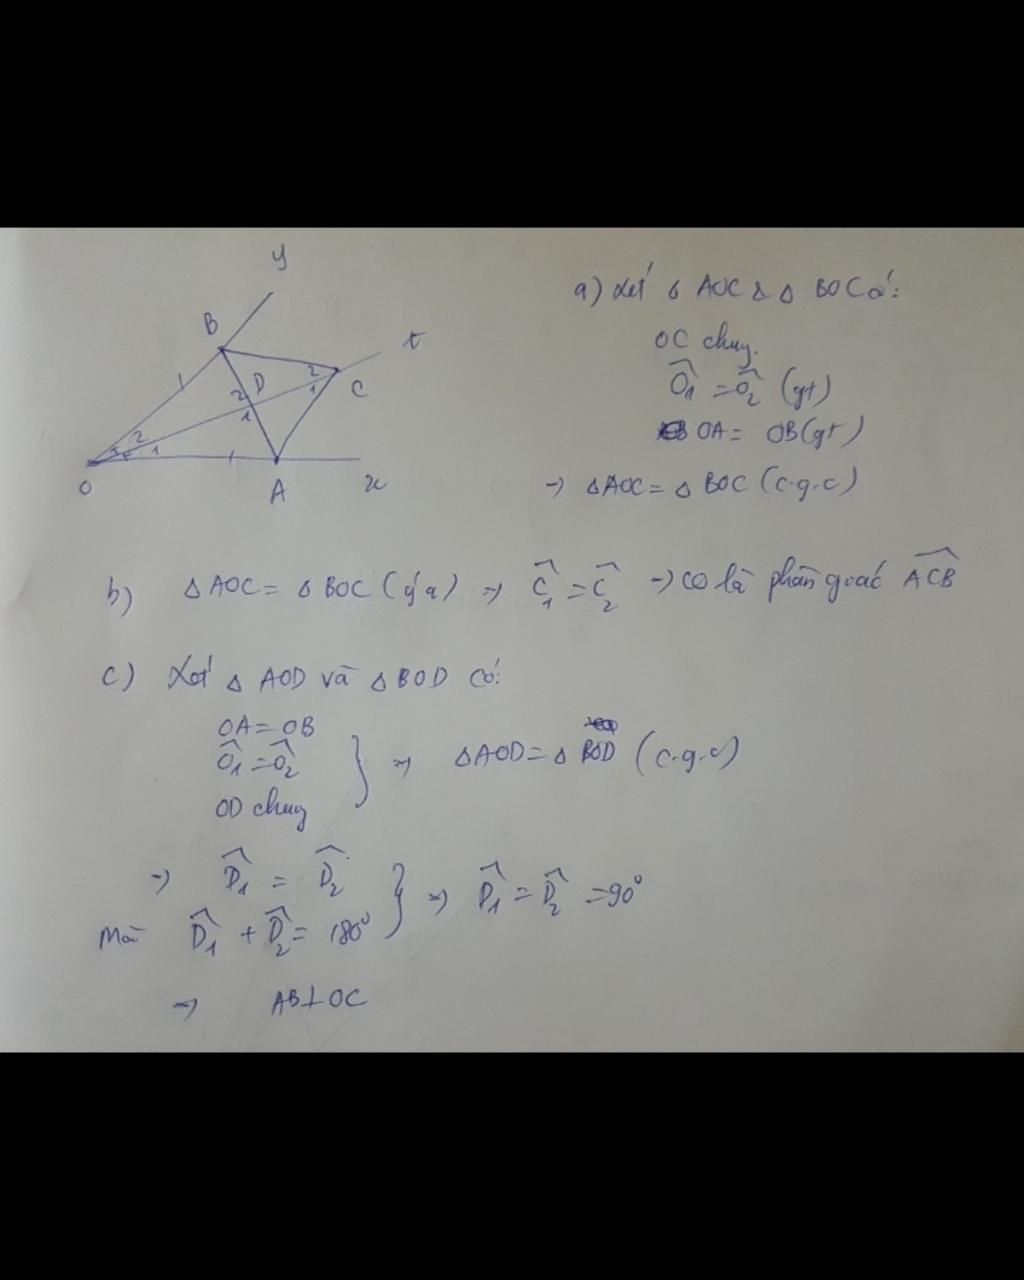 y
B
t
D
2
C
2
1
2
1
2
1
O
A
x
a) Xét Δ AOC & Δ BOC có:
OC chung.
Ô₁ = Ô₂ (gt)
OA = OB (gt)
→ ΔAOC = Δ BOC (c.g.c)
b) ΔAOC = Δ BOC (ý a) → Ĉ₁ = Ĉ₂ → CO là phân giác ACB
c) Xét Δ AOD và Δ BOD có:
OA = OB
Ô₁ = Ô₂
OD chung
} → ΔAOD = Δ BOD (c.g.c)
→ D̂₁ = D̂₂
Mà D̂₁ + D̂₂ = 180°
} → D̂₁ = D̂₂ = 90°
→ AB ⊥ OC